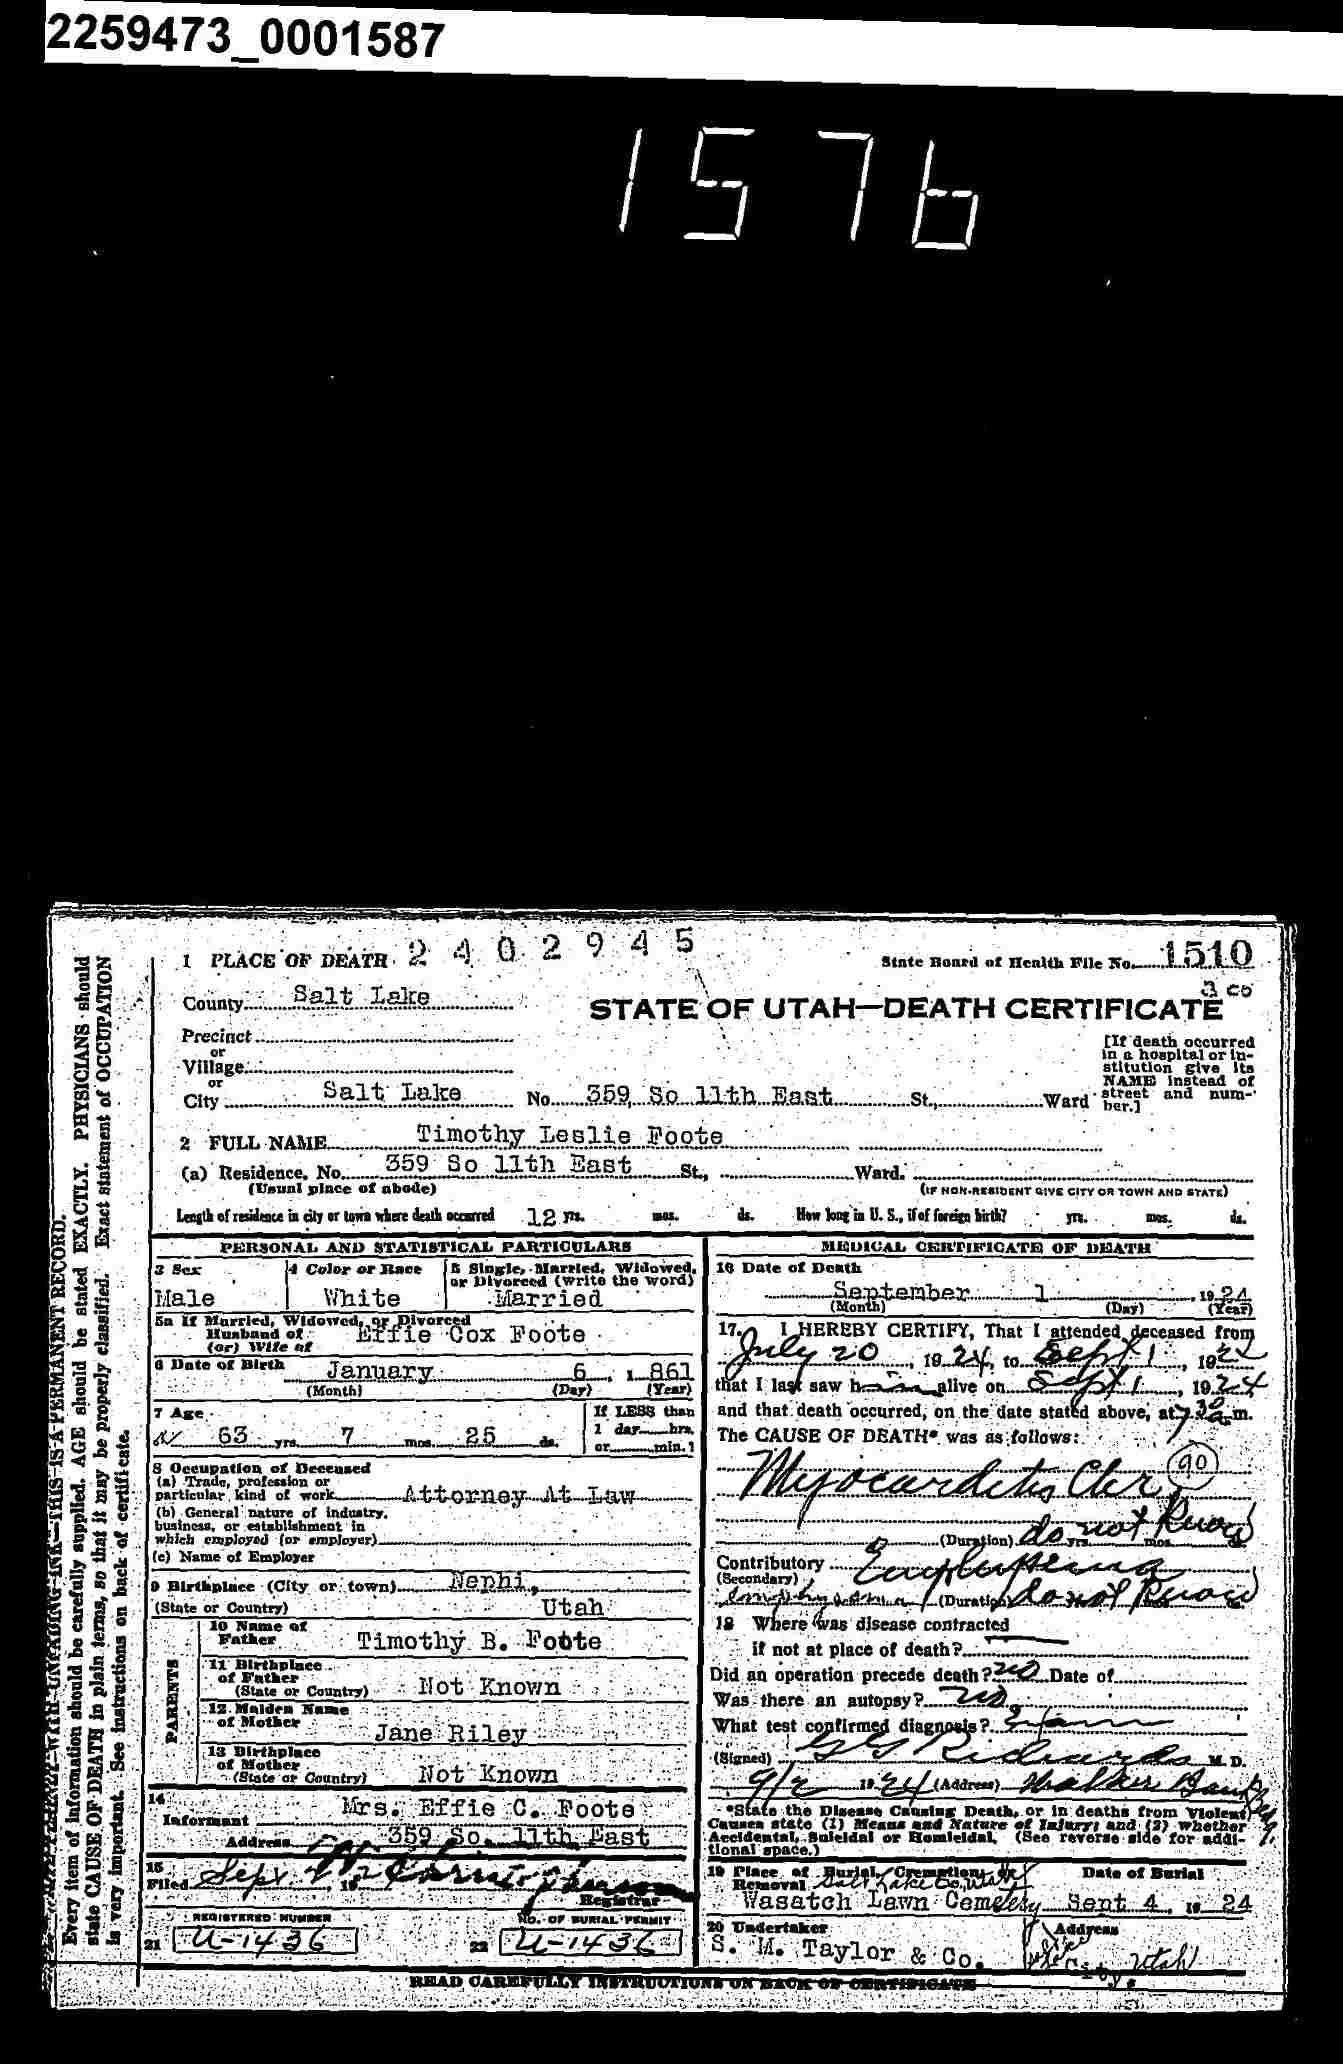 2259473_0001587
1576
1 PLACE OF DEATH 2402945
State Board of Health File No. 1510
County Salt Lake
STATE OF UTAH—DEATH CERTIFICATE
Precinct
or
Village
or
City Salt Lake No. 359 So 11th East St., Ward
[If death occurred
in a hospital or in-
stitution give its
NAME instead of
street and num-
ber.]
2 FULL NAME Timothy Leslie Foote
(a) Residence, No. 359 So 11th East St., Ward.
(Usual place of abode) (IF NON-RESIDENT GIVE CITY OR TOWN AND STATE)
Length of residence in city or town where death occurred 12 yrs. mos. ds. How long in U. S., if of foreign birth? yrs. mos. ds.
PERSONAL AND STATISTICAL PARTICULARS
3 Sex
Male
4 Color or Race
White
5 Single, Married, Widowed,
or Divorced (write the word)
Married
5a If Married, Widowed, or Divorced
Husband of
(or) Wife of Effie Cox Foote
6 Date of Birth January 6, 1861
(Month) (Day) (Year)
7 Age
63 yrs. 7 mos. 25 ds.
If LESS than
1 day hrs.
or min.?
8 Occupation of Deceased
(a) Trade, profession or
particular kind of work Attorney At Law
(b) General nature of industry,
business, or establishment in
which employed (or employer)
(c) Name of Employer
9 Birthplace (City or town) Nephi,
(State or Country) Utah
PARENTS
10 Name of
Father Timothy B. Foote
11 Birthplace
of Father
(State or Country) Not Known
12 Maiden Name
of Mother Jane Riley
13 Birthplace
of Mother
(State or Country) Not Known
14
Informant Mrs. Effie C. Foote
Address 359 So. 11th East
15
Filed Sept 19
Registrar
REGISTERED NUMBER
21 U-1436
NO. OF BURIAL PERMIT
22 U-1436
MEDICAL CERTIFICATE OF DEATH
16 Date of Death
September 1, 1924
(Month) (Day) (Year)
17. I HEREBY CERTIFY, That I attended deceased from
July 20, 1924, to Sept 1, 1924
that I last saw him alive on Sept 1, 1924
and that death occurred, on the date stated above, at 7 30 a.m.
The CAUSE OF DEATH* was as follows:
Myocarditis Chr 90
(Duration) do not Know yrs. mos. ds.
Contributory
(Secondary)
emphysema (Duration) do not Know
18 Where was disease contracted
if not at place of death?
Did an operation precede death? no Date of
Was there an autopsy? no
What test confirmed diagnosis? Exam
(Signed) G G Richards M. D.
9/2 1924 (Address) Walker Bank Bldg.
*State the Disease Causing Death, or in deaths from Violent
Causes state (1) Means and Nature of Injury; and (2) whether
Accidental, Suicidal or Homicidal. (See reverse side for addi-
tional space.)
19 Place of Burial, Cremation, or
Removal Salt Lake Co, Utah
Wasatch Lawn Cemetery
Date of Burial
Sept 4, 1924
20 Undertaker
S. M. Taylor & Co.
Address
City, Utah
READ CAREFULLY INSTRUCTIONS ON BACK OF CERTIFICATE
THIS IS A PERMANENT RECORD.
Every item of information should be carefully supplied. AGE should be stated EXACTLY. PHYSICIANS should
state CAUSE OF DEATH in plain terms, so that it may be properly classified. Exact statement of OCCUPATION
is very important. See instructions on back of certificate.